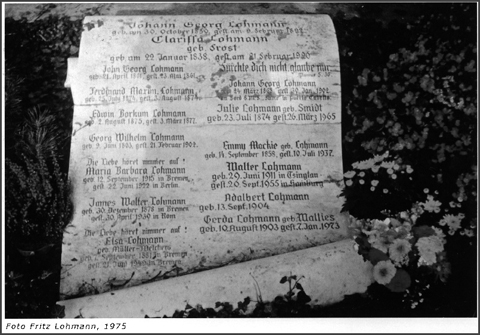 Johann Georg Lohmann
geb. am 30. October 1830, gest. am 8. Februar 1892.
Clarissa Lohmann
geb. Frost
geb. am 22. Januar 1838, gest. am 21. Februar 1920
John Georg Lohmann
Ferdinand Marim. Lohmann
gest. 3. August 1874
Edwin Borkum Lohmann
geb. 2. August 1873, gest. 3. März 1877.
Georg Wilhelm Lohmann
gest. 21. Februar 1902.
Die Liebe höret nimmer auf!
Maria Barbara Lohmann
geb. 12. September 1915 in Bremen
gest. 22. Juni 1922 in Berlin
James Walter Lohmann
geb. 30. Dezember 1878 in Bremen
gest. 30. April 1939 in Rom
Die Liebe höret nimmer auf!
Elsa Lohmann
geb. Müller-
in Bremen
gest. 21. Juni in Bremen
Fürchte dich nicht glaube nur
Johann Georg Lohmann
Julie Lohmann geb. Smidt
geb. 23. Juli 1874 gest. 26. März 1965
Emmy Mackie geb. Lohmann
geb. 14. September 1858, gest. 10. Juli 1937.
Walter Lohmann
geb. 29. Juni 1911 in Tsingtau
gest. 20. Sept. 1955 in Hamburg
Adalbert Lohmann
geb. 13. Sept. 1904
Gerda Lohmann geb. Walles
geb. 10. August 1903 gest. 7. Jan. 1973
Foto Fritz Lohmann, 1975